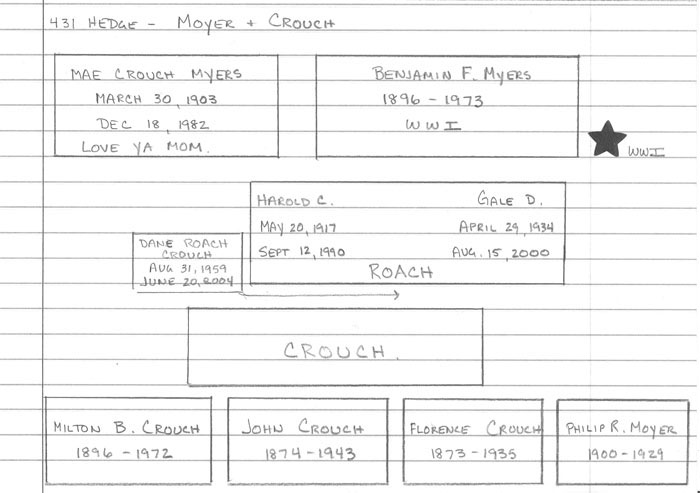 431 HEDGE - MOYER + CROUCH
MAE CROUCH MYERS
MARCH 30, 1903
DEC 18, 1982
LOVE YA MOM.
BENJAMIN F. MYERS
1896 - 1973
WWI
WWI
HAROLD C.
MAY 20, 1917
SEPT 12, 1990
GALE D.
APRIL 29, 1934
AUG. 15, 2000
ROACH
DANE ROACH
CROUCH
AUG 31, 1959
JUNE 20, 2004
CROUCH.
MILTON B. CROUCH
1896 - 1972
JOHN CROUCH
1874 - 1943
FLORENCE CROUCH
1873 - 1935
PHILIP R. MOYER
1900 - 1929